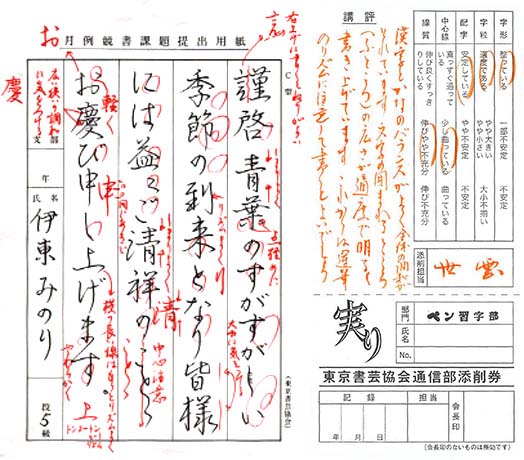 月例競書課題提出用紙
C票
謹啓 青葉のすがすがしい
季節の到来となり皆様
には益々ご清祥のことと
お慶び申し上げます。
支部
年
氏名
伊東みのり
段
5
級
(東京書芸協会)
お
慶
軽く
申
清
中心注意
上
講評
漢字とかなのバランスがよく全体の中心が
とれています 文字の囲まれたところ
(ふところ)の広さが適度で明るく
書き上げています
のリズムに注意して書くとよいでしょう
字形 整っている 一部不安定 不安定
字粒 適度である やや大きい やや小さい 大小不揃い
配字 安定している やや不安定 不安定
中心線 真っすぐ通っている 少し曲っている 曲っている
線質 伸び良くすっきりしている 伸びやや不充分 伸び不充分
添削担当
実り
部門 ペン習字部
氏名
No.
東京書芸協会通信部添削券
記録 担当 会長印
年 月 日
(会長印のないものは無効です)